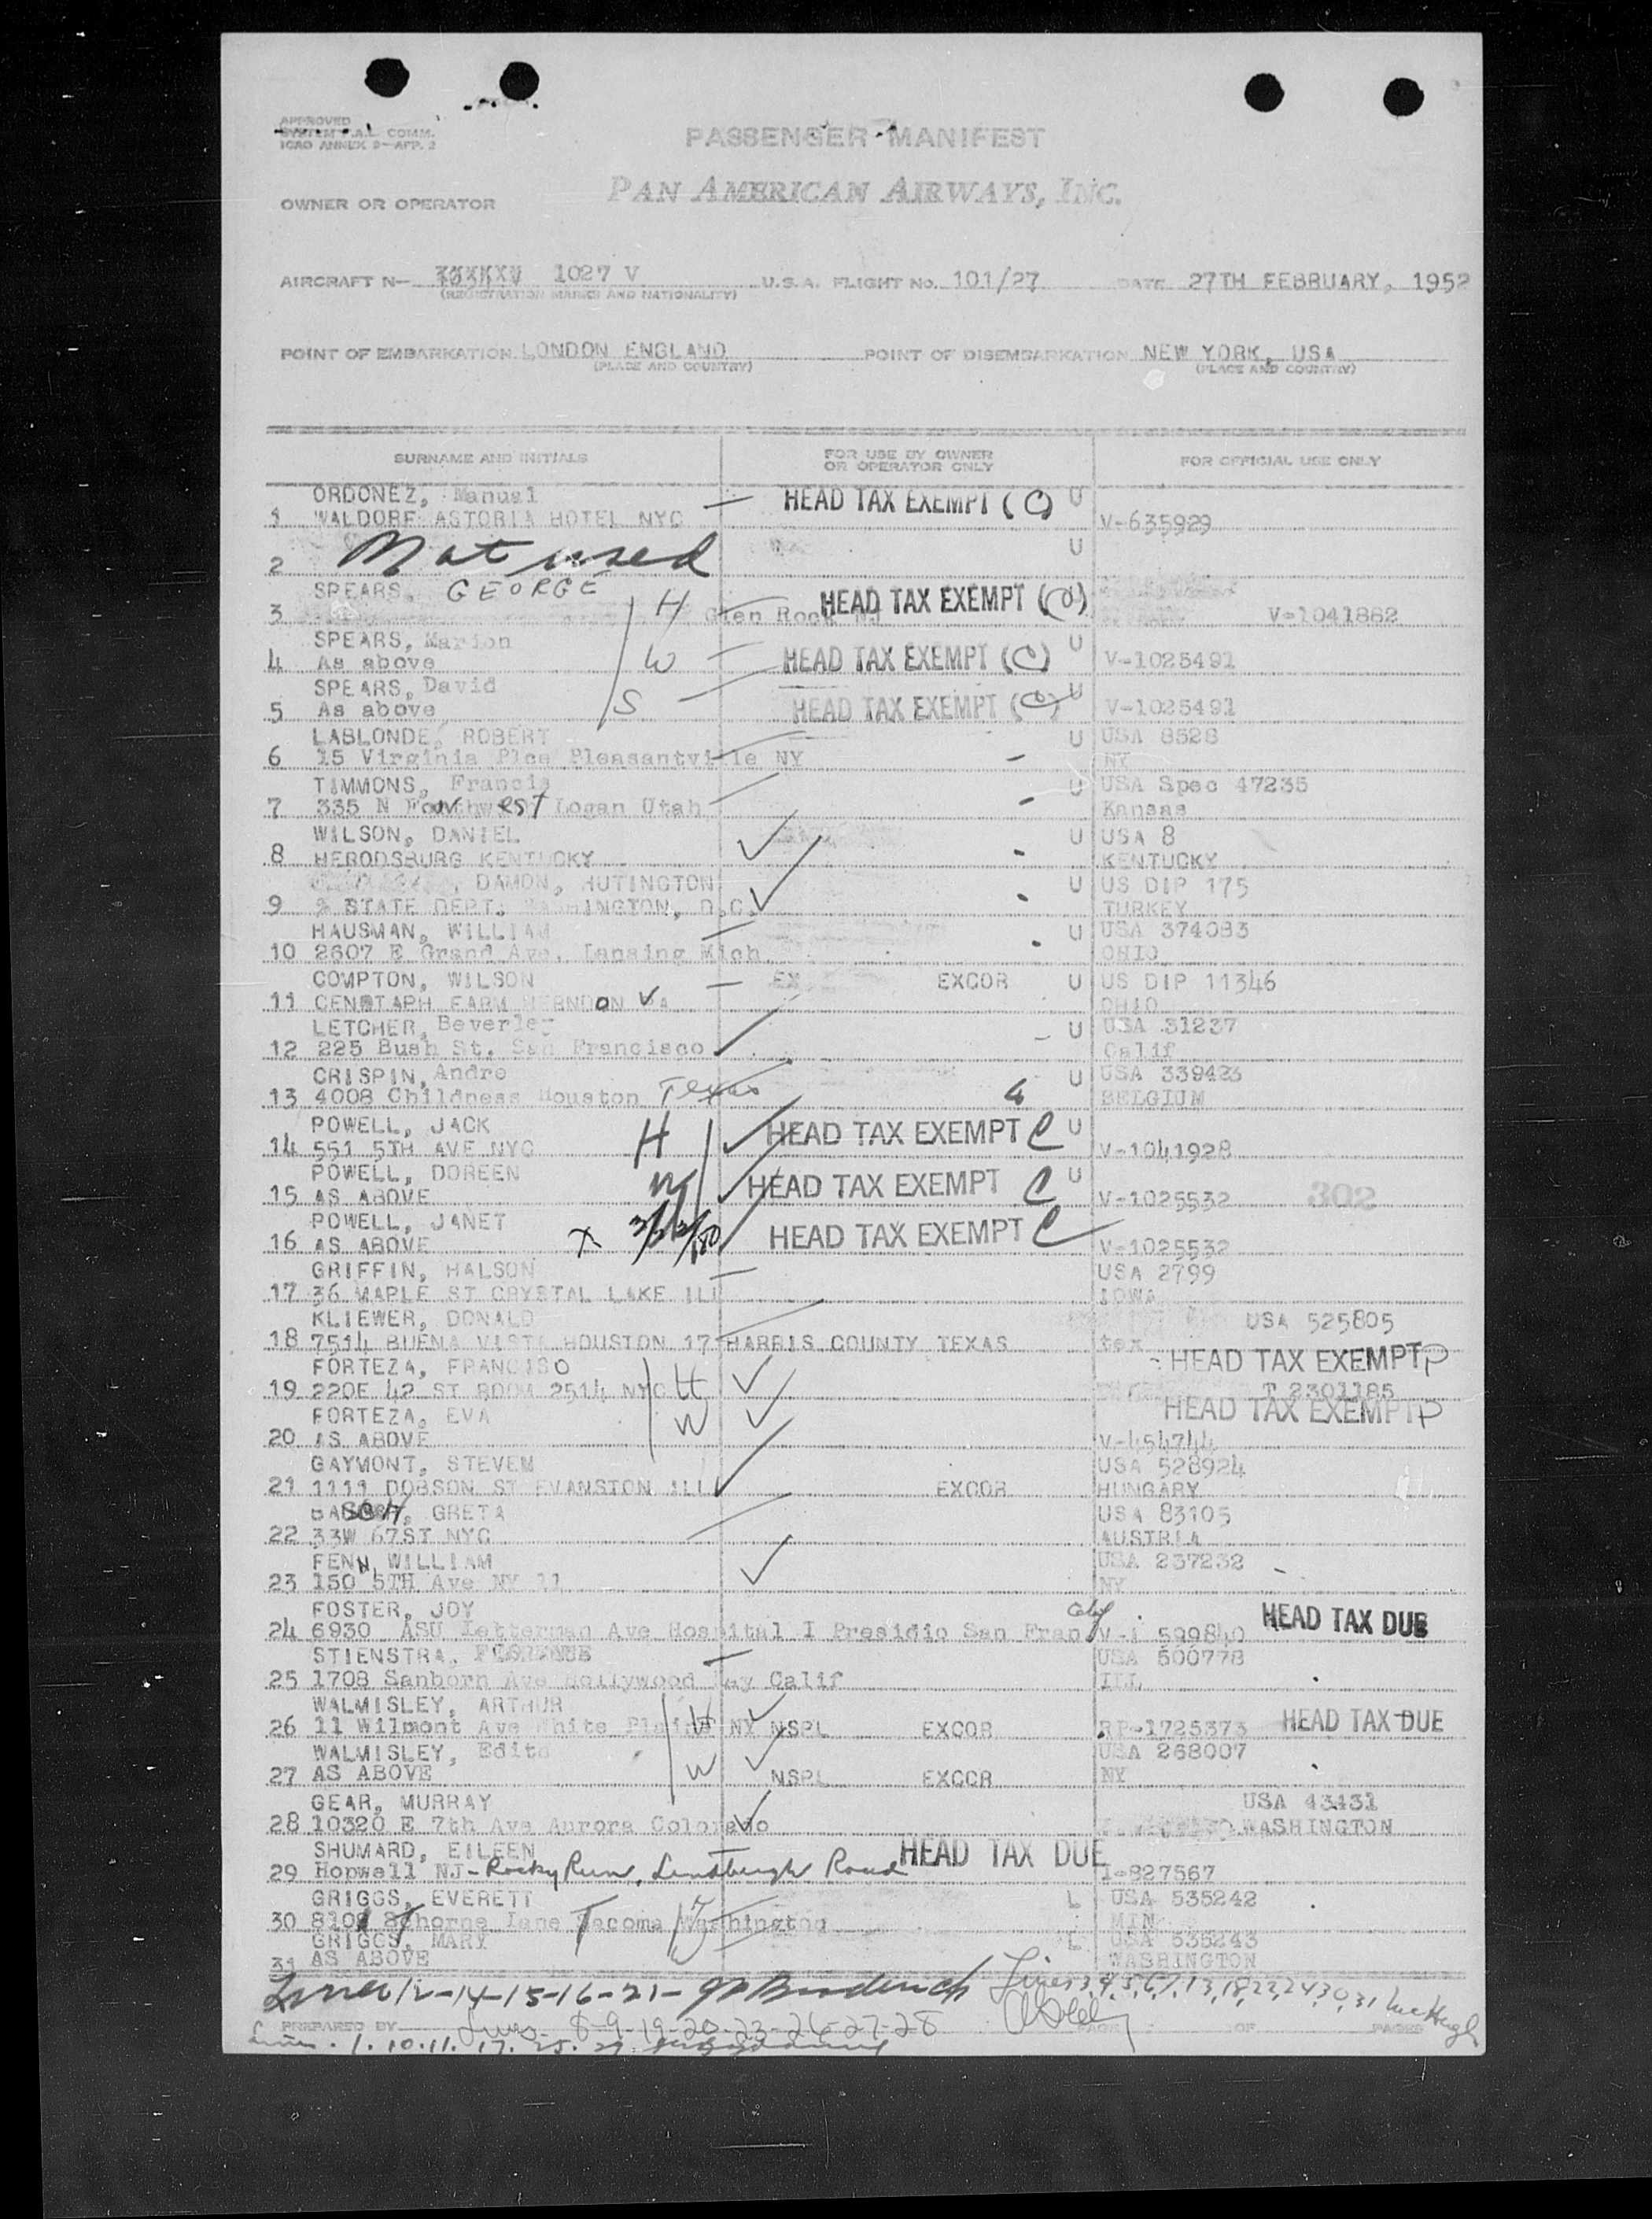 APPROVED
SYSTEM F.A.L. COMM.
ICAO ANNEX 9-APP. 2
PASSENGER MANIFEST
OWNER OR OPERATOR PAN AMERICAN AIRWAYS, INC.
AIRCRAFT N- 1027 V U.S.A. FLIGHT NO. 101/27 DATE 27TH FEBRUARY, 1952
(REGISTRATION MARKS AND NATIONALITY)
POINT OF EMBARKATION LONDON ENGLAND POINT OF DISEMBARKATION NEW YORK, USA
(PLACE AND COUNTRY) (PLACE AND COUNTRY)
SURNAME AND INITIALS FOR USE BY OWNER OR OPERATOR ONLY FOR OFFICIAL USE ONLY
ORDONEZ, Manual HEAD TAX EXEMPT (C) U
1 WALDORF ASTORIA HOTEL NYC V-635929
2 Not used U
SPEARS, GEORGE HEAD TAX EXEMPT (C)
3 H Glen Rock NJ V-1041882
SPEARS, Marion U
4 As above W HEAD TAX EXEMPT (C) V-1025491
SPEARS, David U
5 As above S HEAD TAX EXEMPT (C) V-1025491
LABLONDE, ROBERT U USA 8528
6 15 Virginia Plce Pleasantville NY NY
TIMMONS, Francis U USA Spec 47235
7 335 N Logan Utah Kansas
WILSON, DANIEL U USA 8
8 HERODSBURG KENTUCKY KENTUCKY
, DAMON, HUTINGTON U US DIP 175
9 % STATE DEPT. WASHINGTON, D.C. TURKEY
HAUSMAN, WILLIAM U USA 374083
10 2607 E Grand Ave. Lansing Mich. OHIO
COMPTON, WILSON EX EXCOR U US DIP 11346
11 CENOTAPH FARM HERNDON VA OHIO
LETCHER, Beverley U USA 31237
12 225 Bush St. San Francisco Calif
CRISPIN, Andre U USA 339423
13 4008 Childness Houston Texas BELGIUM
POWELL, JACK H HEAD TAX EXEMPT C U
14 551 5TH AVE NYC V-1041928
POWELL, DOREEN W HEAD TAX EXEMPT C U
15 AS ABOVE V-1025532 302
POWELL, JANET HEAD TAX EXEMPT C
16 AS ABOVE X V-1025532
GRIFFIN, HALSON USA 2799
17 36 MAPLE ST CRYSTAL LAKE ILL IOWA
KLIEWER, DONALD USA 525805
18 7514 BUENA VISTA HOUSTON 17 HARRIS COUNTY TEXAS tex
FORTEZA, FRANCISO HEAD TAX EXEMPT P
19 220E 42 ST ROOM 2514 NYC H T 2301185
FORTEZA, EVA W HEAD TAX EXEMPT P
20 AS ABOVE V-454744
GAYMONT, STEVEN USA 528924
21 1111 DOBSON ST EVANSTON ILL EXCOR HUNGARY
GRETA USA 83105
22 33W 67ST NYC AUSTRIA
FENN, WILLIAM USA 237232
23 150 5TH Ave NY 11 NY
FOSTER, JOY HEAD TAX DUE
24 6930 ASU Letterman Ave Hospital I Presidio San Fran V-I 599840
STIENSTRA, USA 500778
25 1708 Sanborn Ave Hollywood Calif ILL
WALMISLEY, ARTHUR H
26 11 Wilmont Ave White Plains NY NSPL EXCOR RP-1725373 HEAD TAX DUE
WALMISLEY, Edith W USA 268007
27 AS ABOVE NSPL EXCOR NY
GEAR, MURRAY USA 43431
28 10320 E 7th Ave Aurora Colorado WASHINGTON
SHUMARD, EILEEN HEAD TAX DUE
29 Hopwell NJ - Rocky Run, Lindbergh Road I-827567
GRIGGS, EVERETT L USA 535242
30 Thorne Lane Tacoma Washington MIN
GRIGGS, MARY L USA 535243
31 AS ABOVE WASHINGTON
Lines 12-14-15-16-21- Lines 3,4,5,6,7,13,18,22,24,30,31
PREPARED BY Lines 8-9-19-20-23-26-27-28 PAGE OF PAGES
Lines . 1. 10. 11. 17. 25. 29.